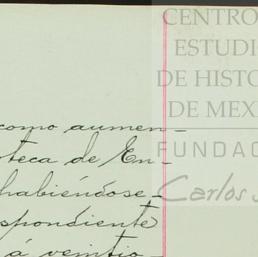 CENTRO
ESTUDI
DE HISTO
DE MEX
FUNDAC
Carlos S
como aumen-
teca de En-
habiéndose
spondiente
á veintio-